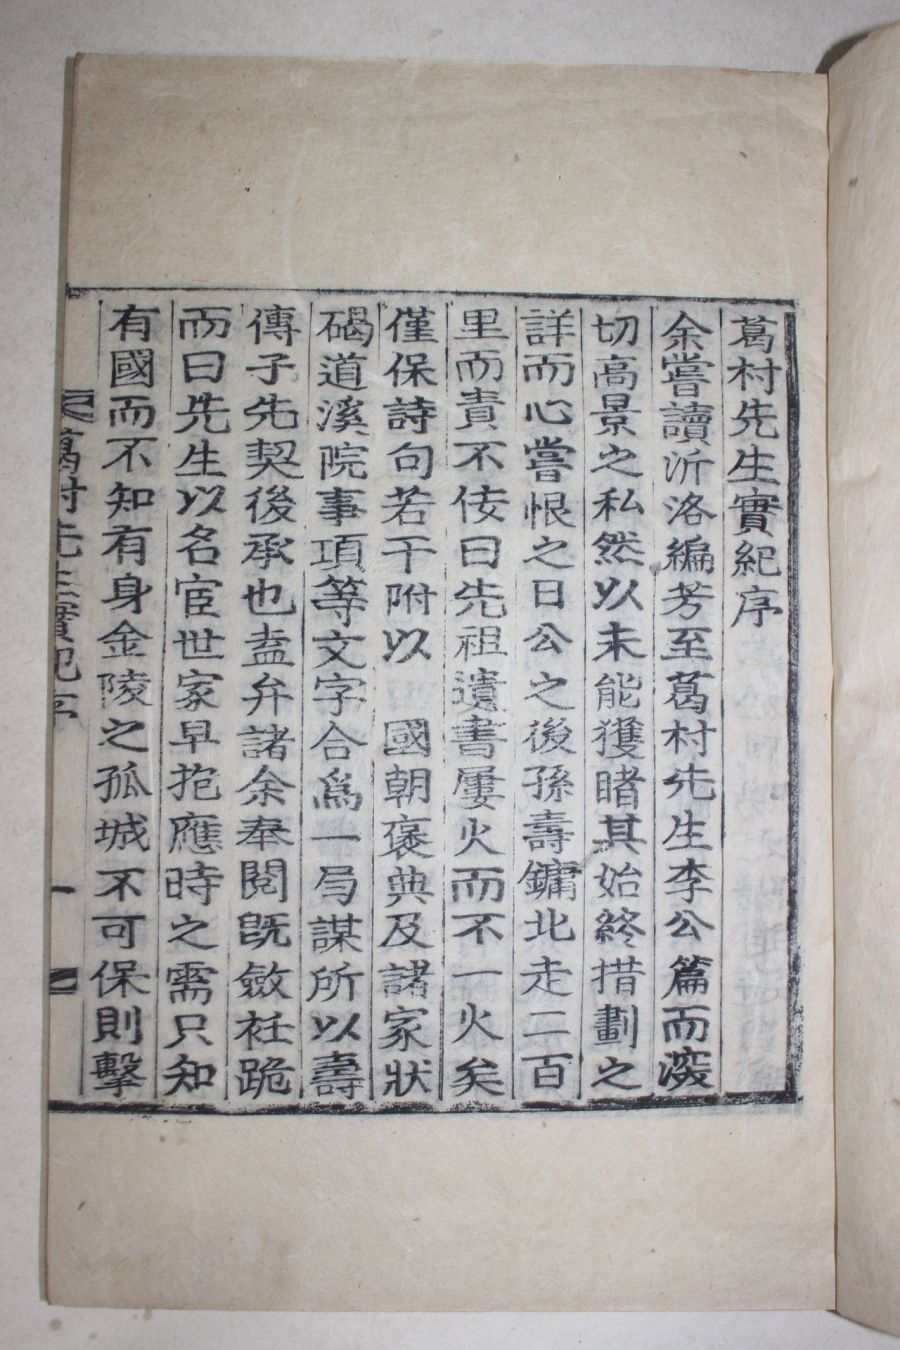 葛村先生實紀序
余嘗讀沂洛編芳至葛村先生李公篇而深
切高景之私然以未能獲睹其始終措劃之
詳而心嘗恨之日公之後孫壽鏞北走二百
里而責不佞曰先祖遺書屢火而不一火矣
僅保詩句若干附以　國朝褒典及諸家狀
碣道溪院事項等文字合爲一局謀所以壽
傳子先契後承也盍弁諸余奉閱旣斂衽跪
而曰先生以名宦世家早抱應時之需只知
有國而不知有身金陵之孤城不可保則擊
葛村先生實紀序
一